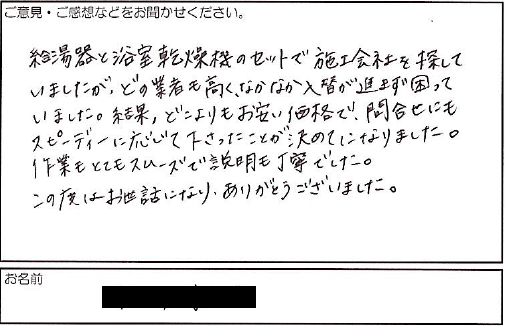 ご意見・ご感想などをお聞かせください。
給湯器と浴室乾燥機のセットで施工会社を探して
いましたが、どの業者も高く、なかなか入替が進まず困って
いました。結果、どこよりもお安い価格で、問合せにも
スピーディーに応じて下さったことが決めてになりました。
作業もとてもスムーズで説明も丁寧でした。
この度はお世話になり、ありがとうございました。
お名前